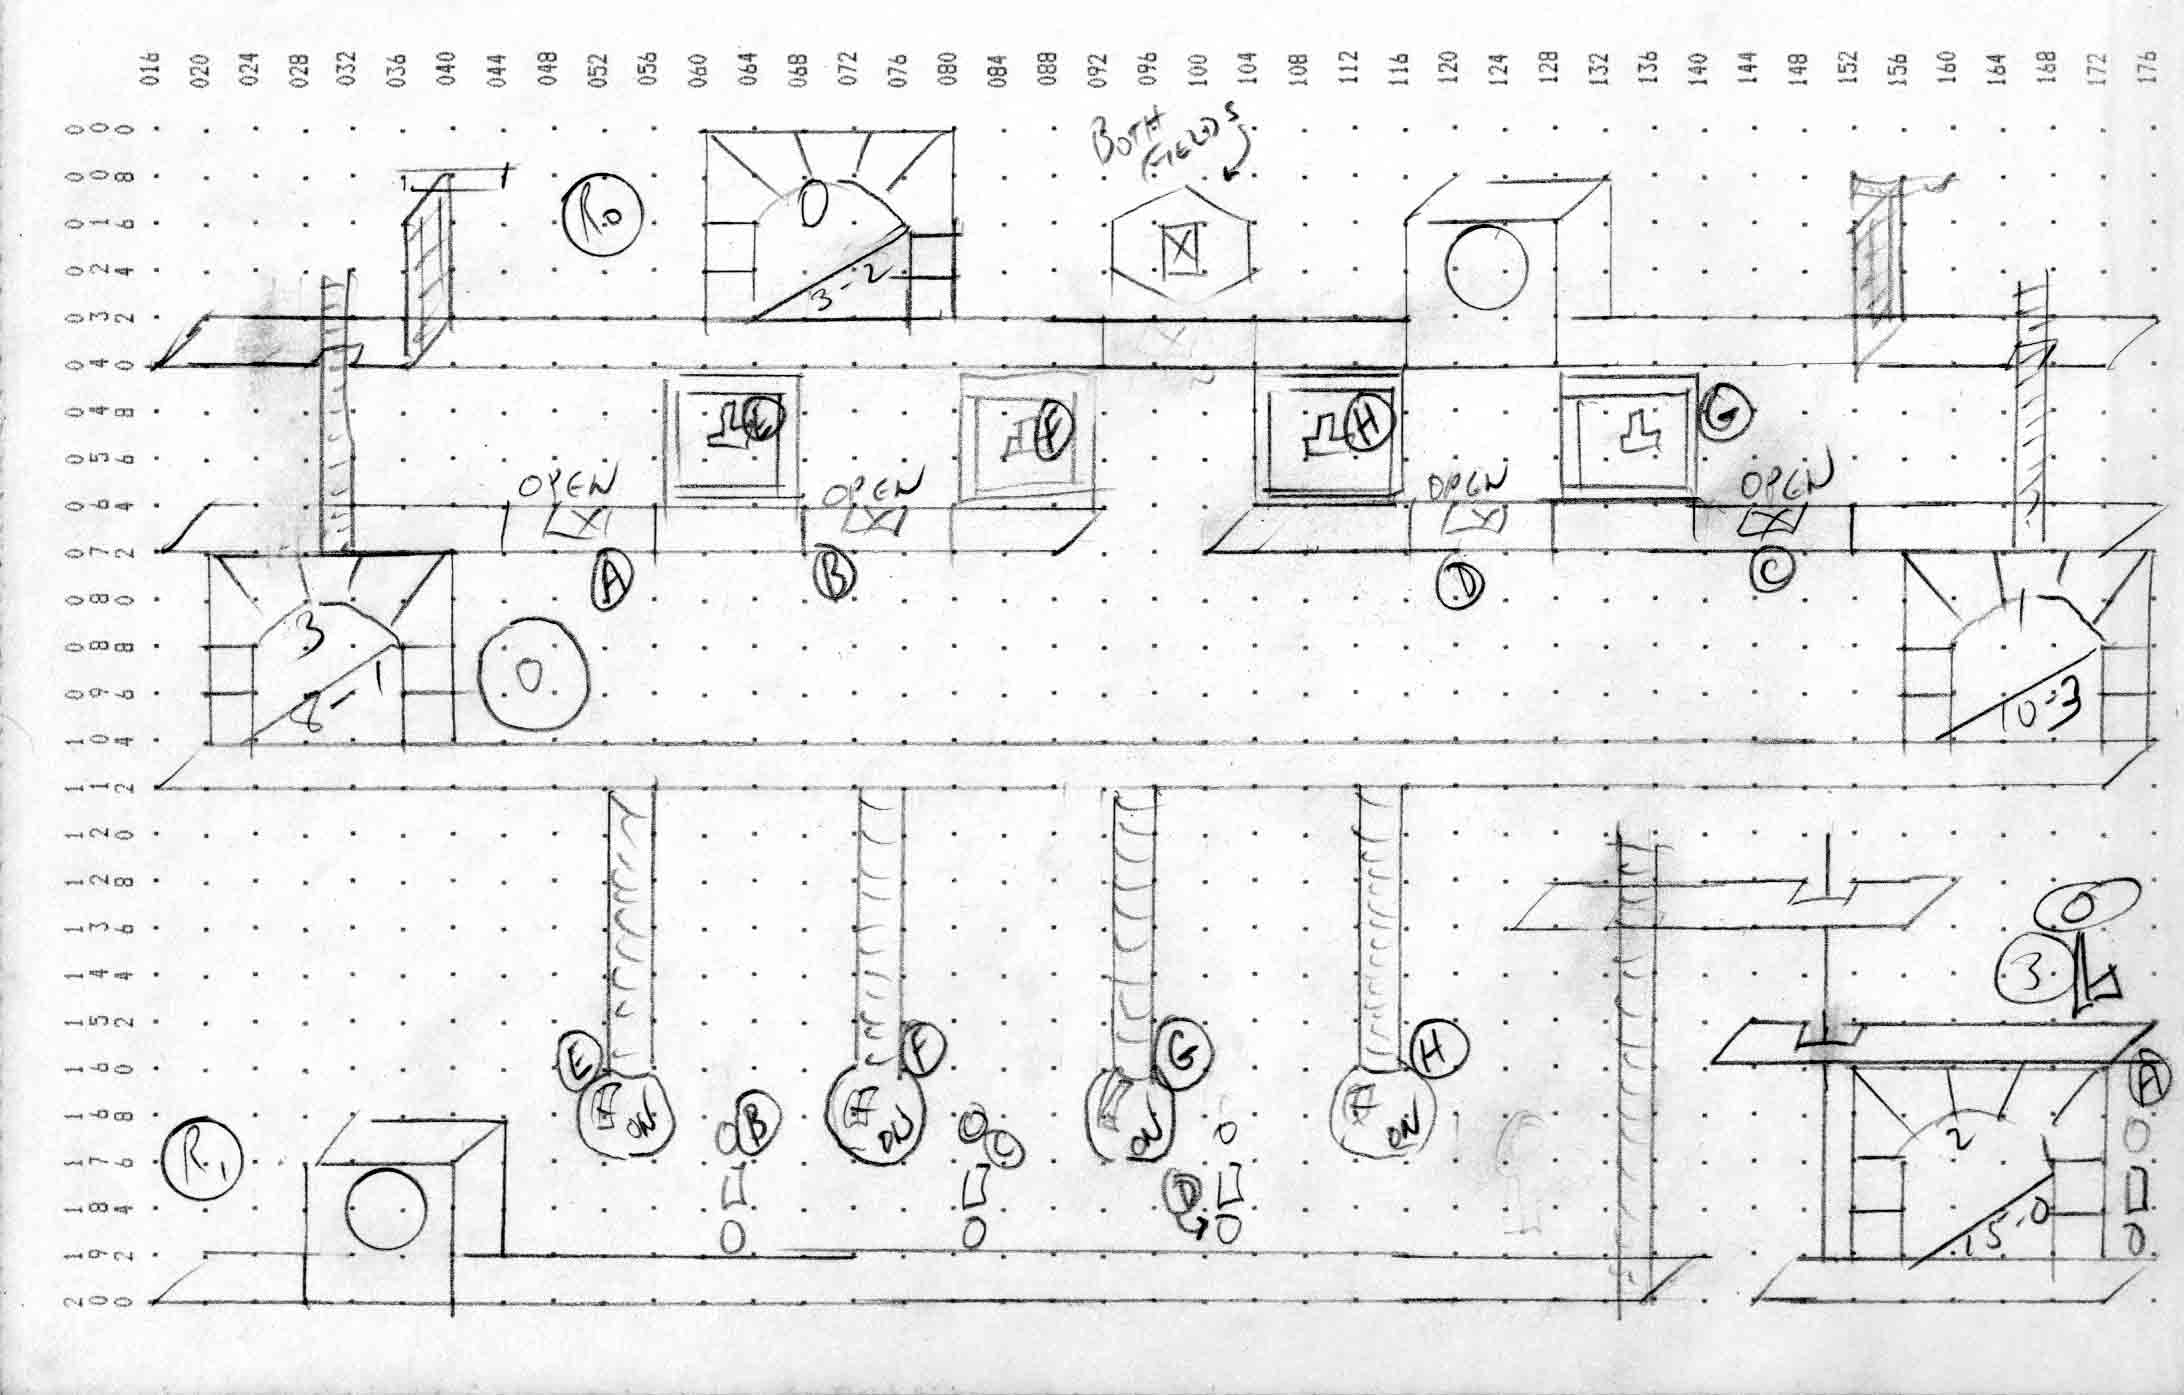 016 020 024 028 032 036 040 044 048 052 056 060 064 068 072 076 080 084 088 092 096 100 104 108 112 116 120 124 128 132 136 140 144 148 152 156 160 164 168 172 176
BOTH
FIELDS
000
008
016
024
032
040
048
056
064
072
080
088
096
104
112
120
128
136
144
152
160
168
176
184
192
200
R0
0
3-2
X
E
F
H
G
OPEN
OPEN
OPEN
OPEN
X
X
X
X
A
B
D
C
3
8-1
0
1
10-3
0
3
E
F
G
H
A
ON
ON
ON
ON
B
C
D
R1
2
15-0